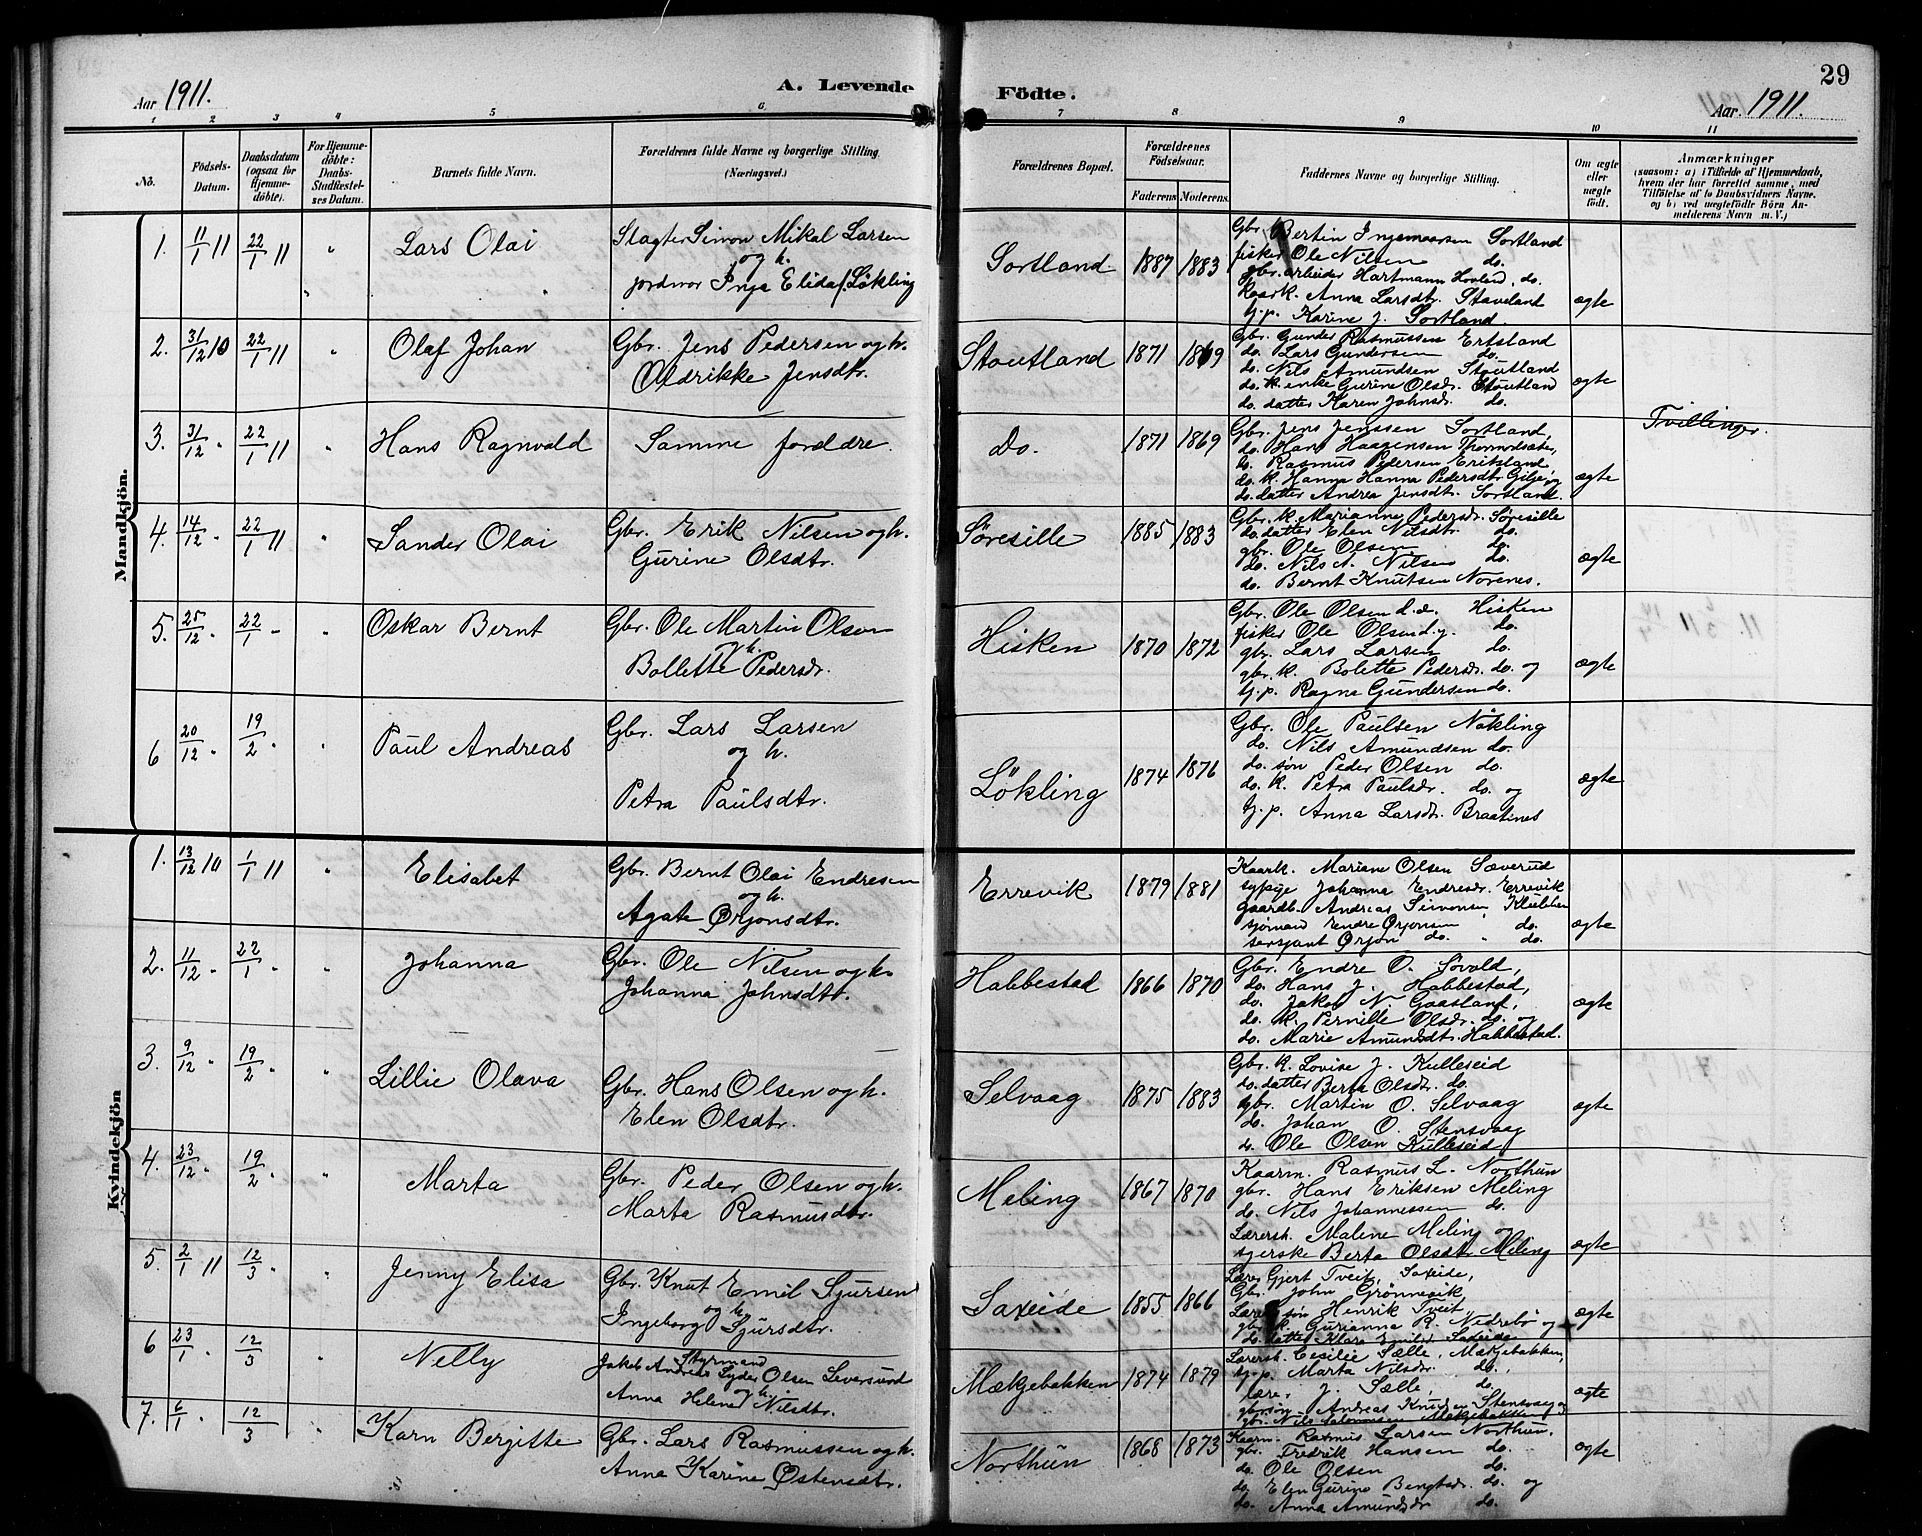 Aar 1911.
A. Levende Födte.
29
Aar. 1911.
1 2 3 4 5 6. 7 8 9 10 11
No.
Födsels-Datum.
Daabsdatum (ogsaa for Hjemme-döbte).
For Hjemme-döbte: Daabs-Stadfæstel-ses Datum.
Barnets fulde Navn.
Forældrenes fulde Navne og borgerlige Stilling. (Næringsvei.)
Forældrenes Bopæl.
Forældrenes Födselsaar.
Faderens Moderens.
Faddernes Navne og borgerlige Stilling.
Om ægte eller uægte födt.
Anmærkninger
(saasom: a) i Tilfælde af Hjemmedaab,
hvem der har forrettet samme, med
Tilföielse af to Daabsvidners Navne,
og b) ved uægtefödte Börn An-
melderens Navn m. V.)
Mandkjön.
1. 11/1 11 22/1 11 " Lars Olai
Slagter Simon Mikal Larsen
og h.
jordmor Inga Elida Løkling
Sortland 1887 1883
Gbr. Bertin Ingemarsen Sortland
fisker Ole Nilsen do.
gbr. arbeider Hartmann Hovland, do.
Kaark. Anna Larsdtr. Staveland
tj.p. Karine J. Sortland
ægte
2. 31/12 10 22/1 11 " Olaf Johan
Gbr. Jens Pedersen og h.
Oldrikke Jensdtr.
Stoutland 1871 1869
Gbr. Gundes Rasmussen Ertsland
do. Lars Gundersen do.
do. Nils Amundsen Stoutland
do. k. enke Gurine Olsdr. Stoutland
do. datter Karen Johnsdr. do.
ægte
3. 31/12 " 22/1 11 " Hans Ragnvald
Samme forældre.
Do. 1871 1869
Gbr. Jens Jenssen Sortland,
do. Hans Haagensen
do. Rasmus Pedersen Eritsland,
do. k. Hanna Hanna Pedersdtr Gilje og
do. datter Andrea Jensdtr. Sortland.
ægte
Tvillinger.
4. 14/12 " 22/1 11 " Sander Olai
Gbr. Erik Nilsen og h.
Gurine Olsdtr.
Søresille 1885 1883
Gbr. k. Marianne Pedersdr. Søresille
do. datter Elen Nilsdtr. do.
gbr. Ole Olsen do.
do. Nils N. Nilsen do.
do. Bernt Knutsen Norenes.
ægte
5. 25/12 " 22/1 " " Oskar Bernt
Gbr. Ole Martin Olsen
og h.
Bollette Pedersdr.
Hisken 1870 1872
Gbr. Ole Olsen d.æ. Hisken
fisker Ole Olsen d.y. do.
gbr. Lars Larsen do.
gbr. k. Bolette Pedersdr. do. og
tj.p. Ragna Gundersen do.
ægte
6 20/12 " 19/2 " " Paul Andreas
Gbr. Lars Larsen
og h.
Petra Paulsdtr.
Løkling 1874 1876
Gbr. Ole Paulsen Nökling
do. Nils Amundsen do.
do. søn Peder Olsen do.
do. k. Petra Paulsdr. do. og
tj.p. Anna Larsdtr. Braatines
ægte
Kvindekjön
1. 13/12 10 1/1 11 " Elisabet
Gbr. Bernt Olai Endresen
og h.
Agate Ørjonsdtr.
Errevik 1879 1881
Kaark. Mariane Olsen Sæverud
sypige Johanna Endresdr. Errevik
gaardb. Andreas Simonsen
sjømand Endre Ørjonsen do.
sersjant Ørjon do. " do.
ægte
2. 11/12 " 22/1 " " Johanna
Gbr. Ole Nilsen og h.
Johanna Johnsdtr.
Habbestad 1866 1870
Gbr. Endre O. Søvold,
do. Hans J. Habbestad,
do. Jakob N. Gaasland,
do. k. Pernille Olsdr. do. og
do. Marie Amundsdtr. Habbestad.
ægte
3. 9/12 " 19/2 " " Lillie Olava
Gbr. Hans Olsen og h.
Elen Olsdtr.
Selvaag 1875 1883
Gbr. k. Lovise J. Kulleseid
do. datter Berta Olsdtr. do.
Gbr. Martin O. Selvaag
do. Johan O. Stensvaag
do. Ole Olsen Kulleseid
ægte
4. 23/12 " 19/2 " " Marta
Gbr. Peder Olsen og h.
Marta Rasmusdtr.
Meling 1867 1870
Kaarm. Rasmus L. Northun
gbr. Hans Eriksen Meling
do. Nils Johannessen do.
Lærersk. Malene Meling og
syerske Berta Olsdtr. Meling
ægte
5. 2/1 11 12/3 " " Jenny Elisa
Gbr. Knut Emil Sjursen
og h.
Ingeborg Sjursdtr.
Saxeide 1855 1866
Lærer Gjert Tveit, Saxeide,
Gbr. John Grönnevik
Lærer søn Henrik Tveit,
gbr. k. Gurianna R. Nedrebø og
do. datter Klara Emilie Saxeide
ægte
6 23/1 " 12/3 " " Nelly
Styrmand
Jakob Andreas Lyder Olsen Leversund
og h.
Anna Helene Nilsdtr.
Mækjebakken 1874 1879
Lærersk. Cecilie Sælle, Mækjebakken,
tj.p. Marta Nilsdr. do.,
lærer J. Sælle, do.
gbr.søn Andreas Knudsen Stensvaag og
gbr. Nils Salomonsen Mækjebakken
ægte
7. 6/1 " 12/3 " Karn Bergitte
Gbr. Lars Rasmussen og h.
Anna Karine Østensdtr.
Northun 1868 1873
Kaarm. Rasmus Larsen Northun,
gbr. Fredrik Hansen do.
do. Ole Olsen do.
do. Elen Gurine Bengtsdr. do. og
do. Anna Amundsdr do.
ægte